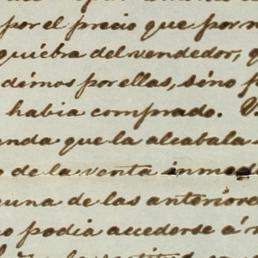 por el precio que por n
quiébra del vendedor, q
dimos por ellas, sino p
habia comprado. V
nda que la alcabala s
o de la venta inmed
guna de las anteriore
no podia accederse á r